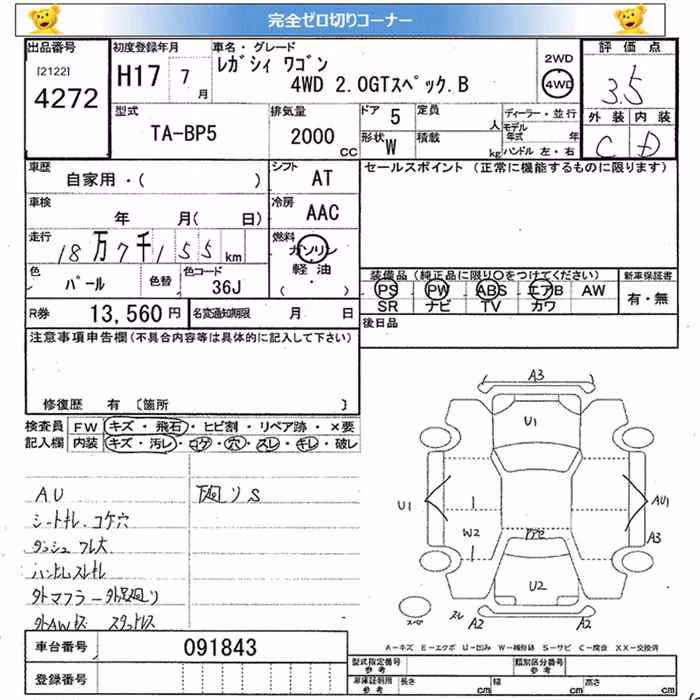 完全ゼロ切りコーナー
出品番号 初度登録年月 車名・グレード 2WD 評価点
[2122] H17 7 月 レガシィ ワゴン 4WD
4272 4WD 2.0GTスペック.B 3.5
型式 排気量 ドア 5 定員 人 ディーラー・並行 外装 内装
TA-BP5 2000 CC 形状 W 積載 kg モデル年式 年 C D
ハンドル 左・右
車歴 シフト AT セールスポイント (正常に機能するものに限ります)
自家用・( )
車検 年 月( 日) 冷房 AAC
走行 18万7千155km 燃料 ガソリン
軽油
( ・ )
色 パール 色替 色コード 36J
装備品(純正品に限り○をつけてください) 新車保証書
PS PW ABS エアB AW 有・無
SR ナビ TV カワ
R券 13,560円 名変通知期限 月 日 後日品
注意事項申告欄(不具合内容等は具体的に記入して下さい)
修復歴 有 〔箇所 〕
検査員 FW キズ・飛石・ヒビ割・リペア跡・×要
記入欄 内装 キズ・汚レ・コゲ・穴・スレ・キレ・破レ
AU 下廻りS
シートキレ.コゲ穴
ハンドルスレキレ
外マフラー 外足廻り
外AWキズ スタッドレス
A3
U1
U1 AU1
W2 A3
U2
スペ スレ A2 A2
A-キズ E-エクボ U-凹み W-補修跡 S-サビ C-腐食 XX-交換済
車台番号 091843
登録番号
型式指定番号 参考 類別区分番号 参考
車庫証明用 参考 長さ cm 幅 cm 高さ cm